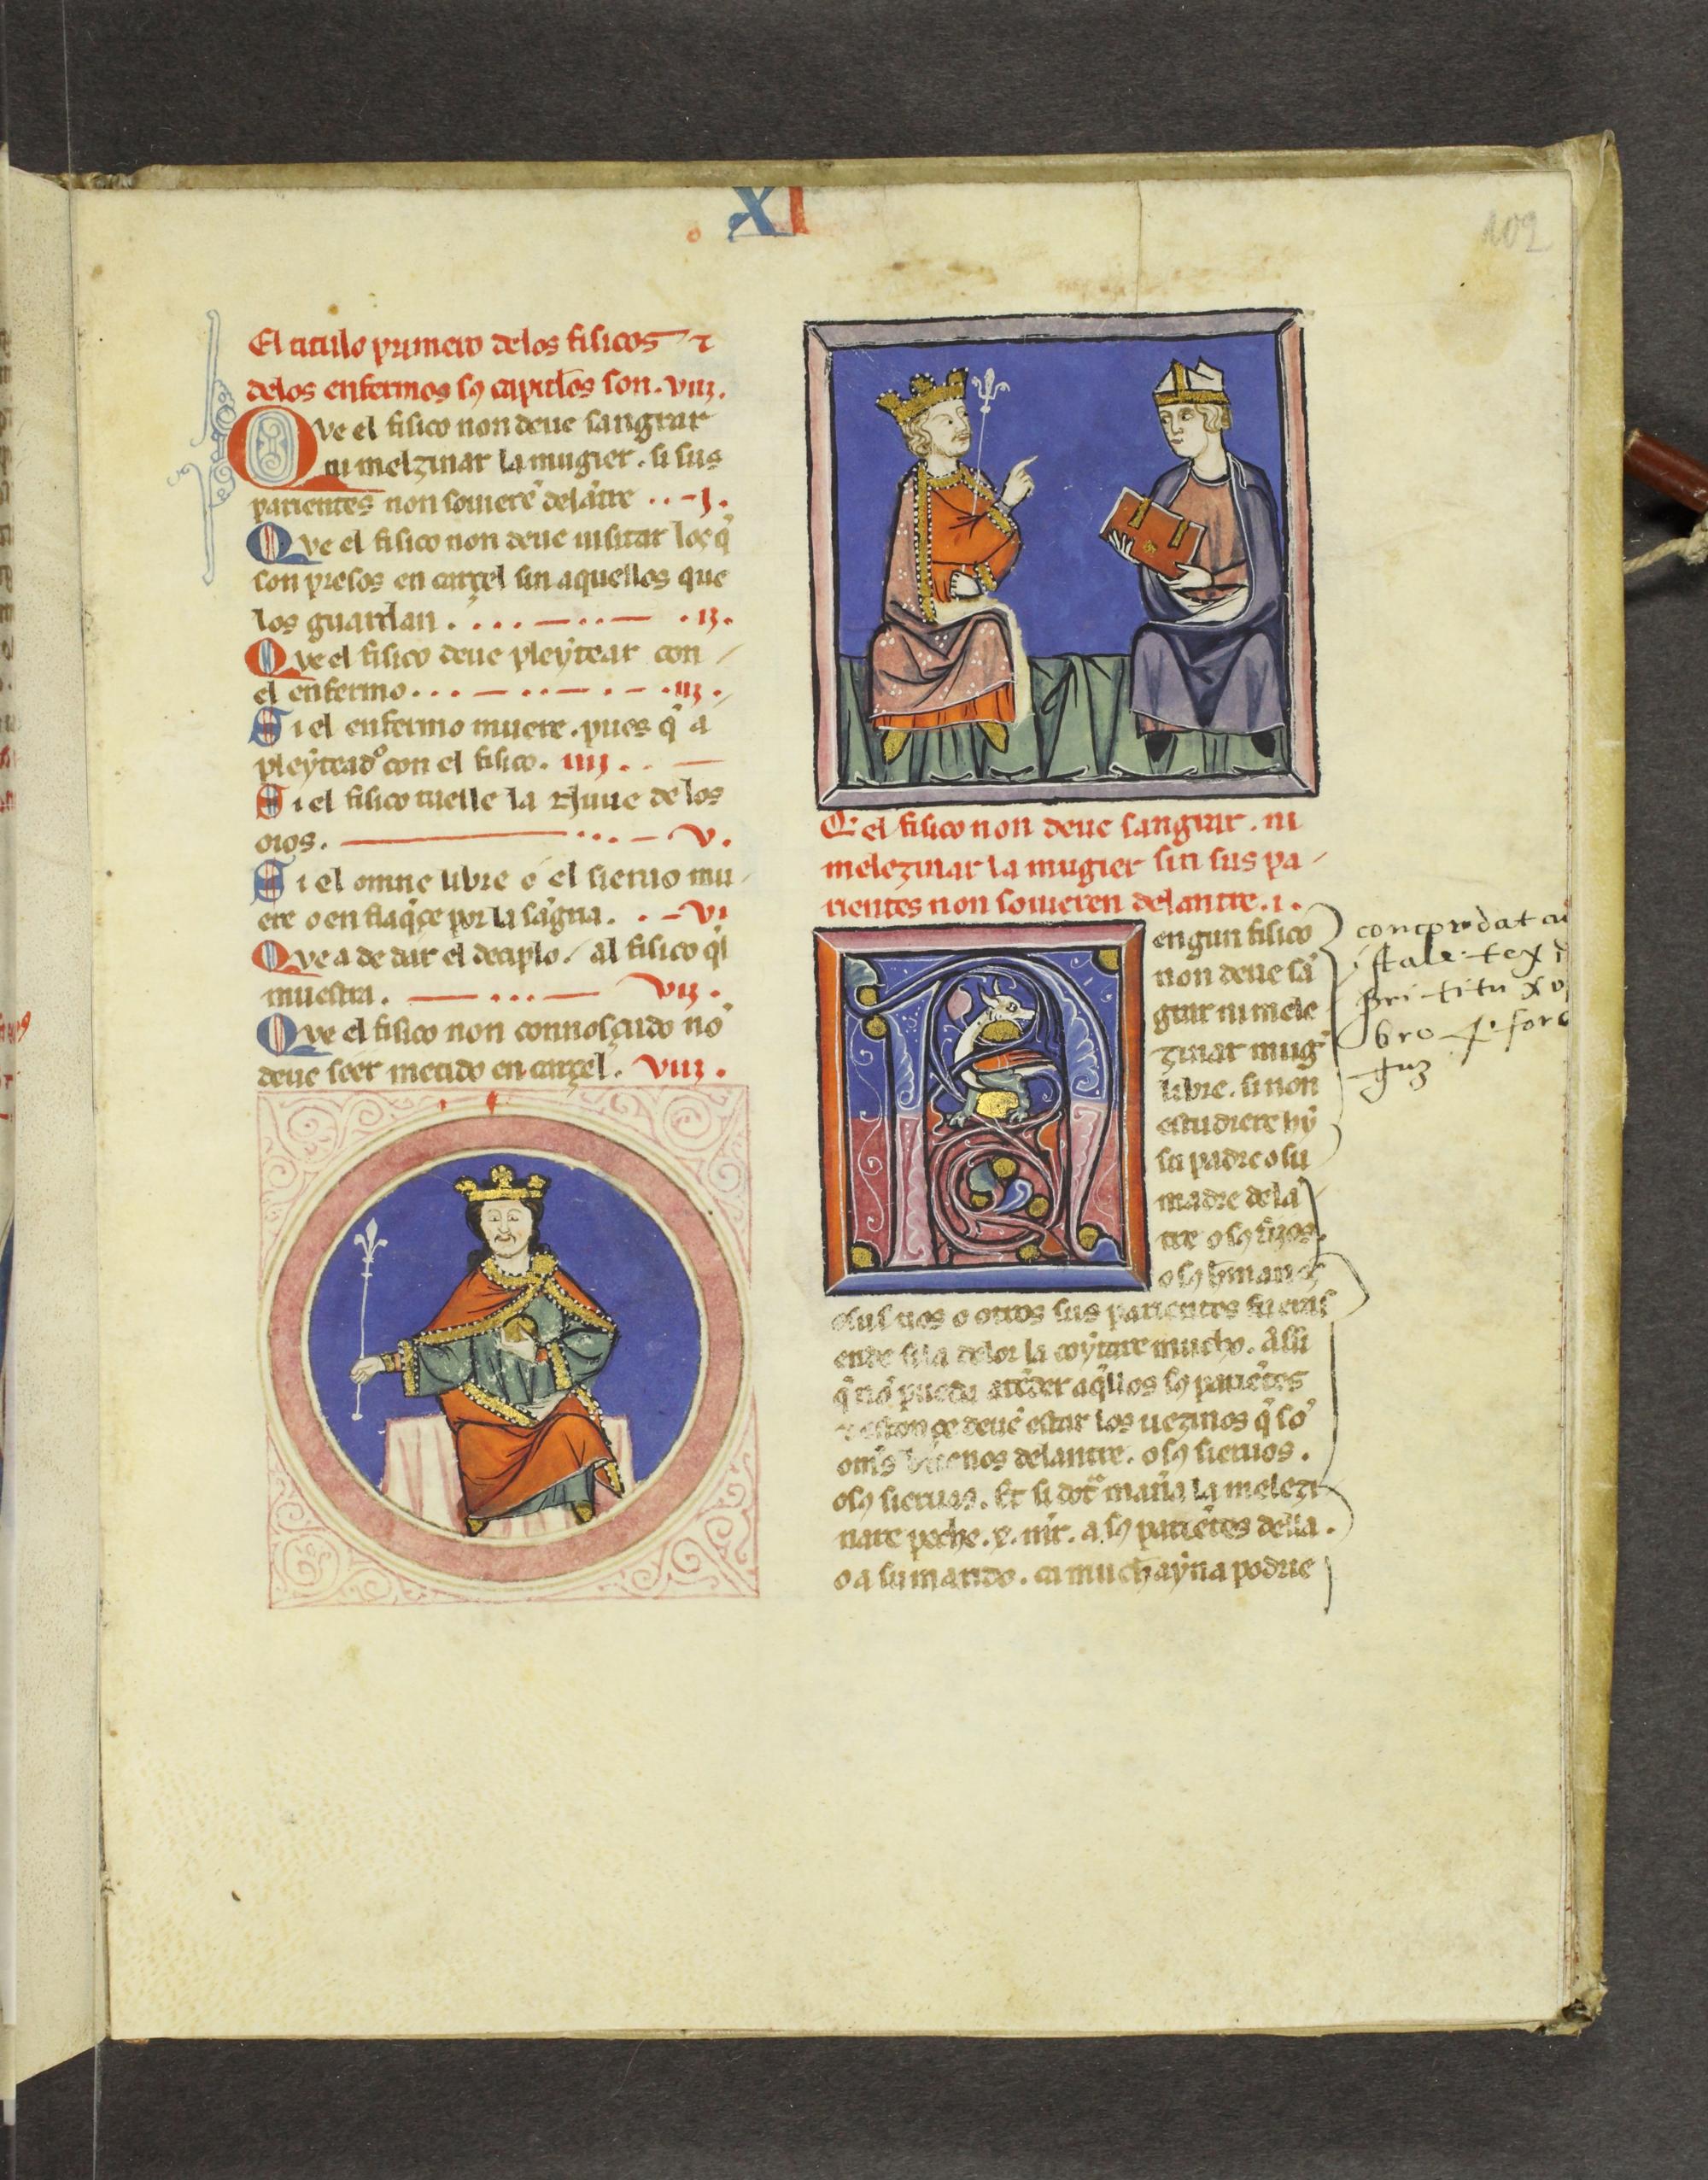 XI
102
El titulo primero delos fisicos ⁊
delos enfermos sꝯ capitulos son. viij.
Que el fisico non deue sangrar
ni melzinar la mugier. si sus
parientes non souierẽ delãtre . . - j.
Que el fisico non deue uisitar los q̃
son presos en carçel sin aquellos que
los guardan . . . . - . . - . ij.
Que el fisico deue pleẏtear con
el enfermo . . . - . . - . - . iij.
Si el enfermo muere. pues q̃ a
pleẏteadº con el fisico. iiij. . . -
Si el fisico tuelle la nuue de los
oios. - . . . - v.
Si el omne libre o el sieruo mu
ere o en flaq̃çe por la sãgria. . - vi
Que a de dar el deciplo / al fisico q̃l
muestra. - . . . - vij.
Que el fisico non connosçudo nõ
deue seer metudo en carçel. viij.
Q̃ el fisico non deue sangrar. ni
melezinar la mugier sin sus pa
rientes non souieren delantre. i.
Nengun fisico
non deue sã
grar ni mele
zinar mug̃
libre. si non
estudiere hẏ
su padre o su
madre delã
tre o sꝯ fijos.
o sꝯ h̃manos
o sus tios o otros sus parientes fueras
ende si la dolor la coẏtare mucho. assi
q̃ nõ pueda atẽder aq̃llos sꝯ pariẽtes
⁊ estonçe deuẽ estar los uezinos q̃ sõ
om̃s buenos delantre. o sꝯ sieruos.
o sꝯ sieruas. Et si dot̃ mañã la melezi
nare peche. x. mr̃. a sꝯ pariẽtes della.
o a su marido. ca much aẏna podrie
concordat cu
ista le: tex i
pri titu xv
bro 4º foro
guz